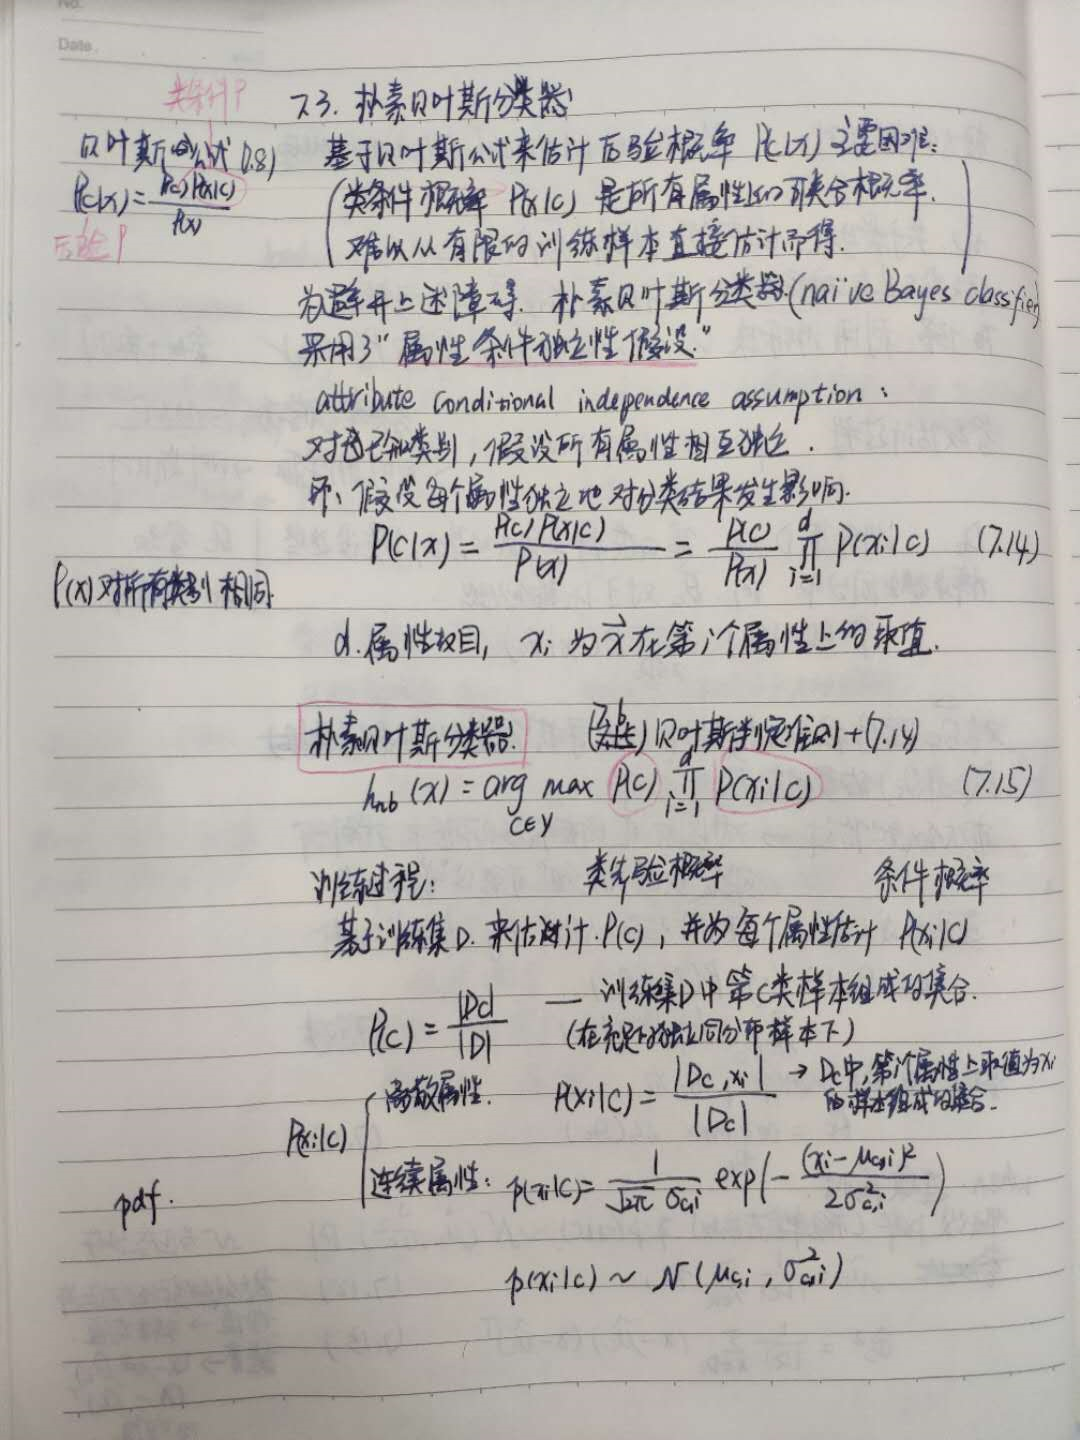 No.
Date.
类条件P
7.3. 朴素贝叶斯分类器
贝叶斯公式 (7.8)
P(c|x) = P(c) P(x|c) / P(x)
后验P
基于贝叶斯公式来估计后验概率 P(c|x) 主要困难:
(类条件概率 P(x|c) 是所有属性上的联合概率.
难以从有限的训练样本直接估计而得.)
为避开上述障碍. 朴素贝叶斯分类器(naïve Bayes classifier)
采用了"属性条件独立性假设."
attribute conditional independence assumption :
对已知类别, 假设所有属性相互独立.
即、假设每个属性独立地对分类结果发生影响.
P(c|x) = P(c) P(x|c) / P(x) = P(c) / P(x) ∏_{i=1}^{d} P(xi|c) (7.14)
P(x)对所有类别相同
d. 属性数目, xi 为 x⃗ 在第i个属性上的取值.
朴素贝叶斯分类器.
贝叶斯判定准则+(7.14)
h_nb (x) = arg max_{c∈y} P(c) ∏_{i=1}^{d} P(xi|c) (7.15)
训练过程: 类先验概率 条件概率
基于训练集D. 来估计 P(c), 并为每个属性估计 P(xi|c)
P(c) = |Dc| / |D| — 训练集D中第c类样本组成的集合.
(在充足的独立同分布样本下)
P(xi|c)
离散属性. P(xi|c) = |Dc,xi| / |Dc| → Dc中,第i个属性上取值为xi
的样本组成的集合.
连续属性: p(xi|c) = 1 / (√2π σc,i) exp(- (xi-μc,i)² / 2σ²c,i)
pdf.
p(xi|c) ~ N(μc,i , σ²c,i)